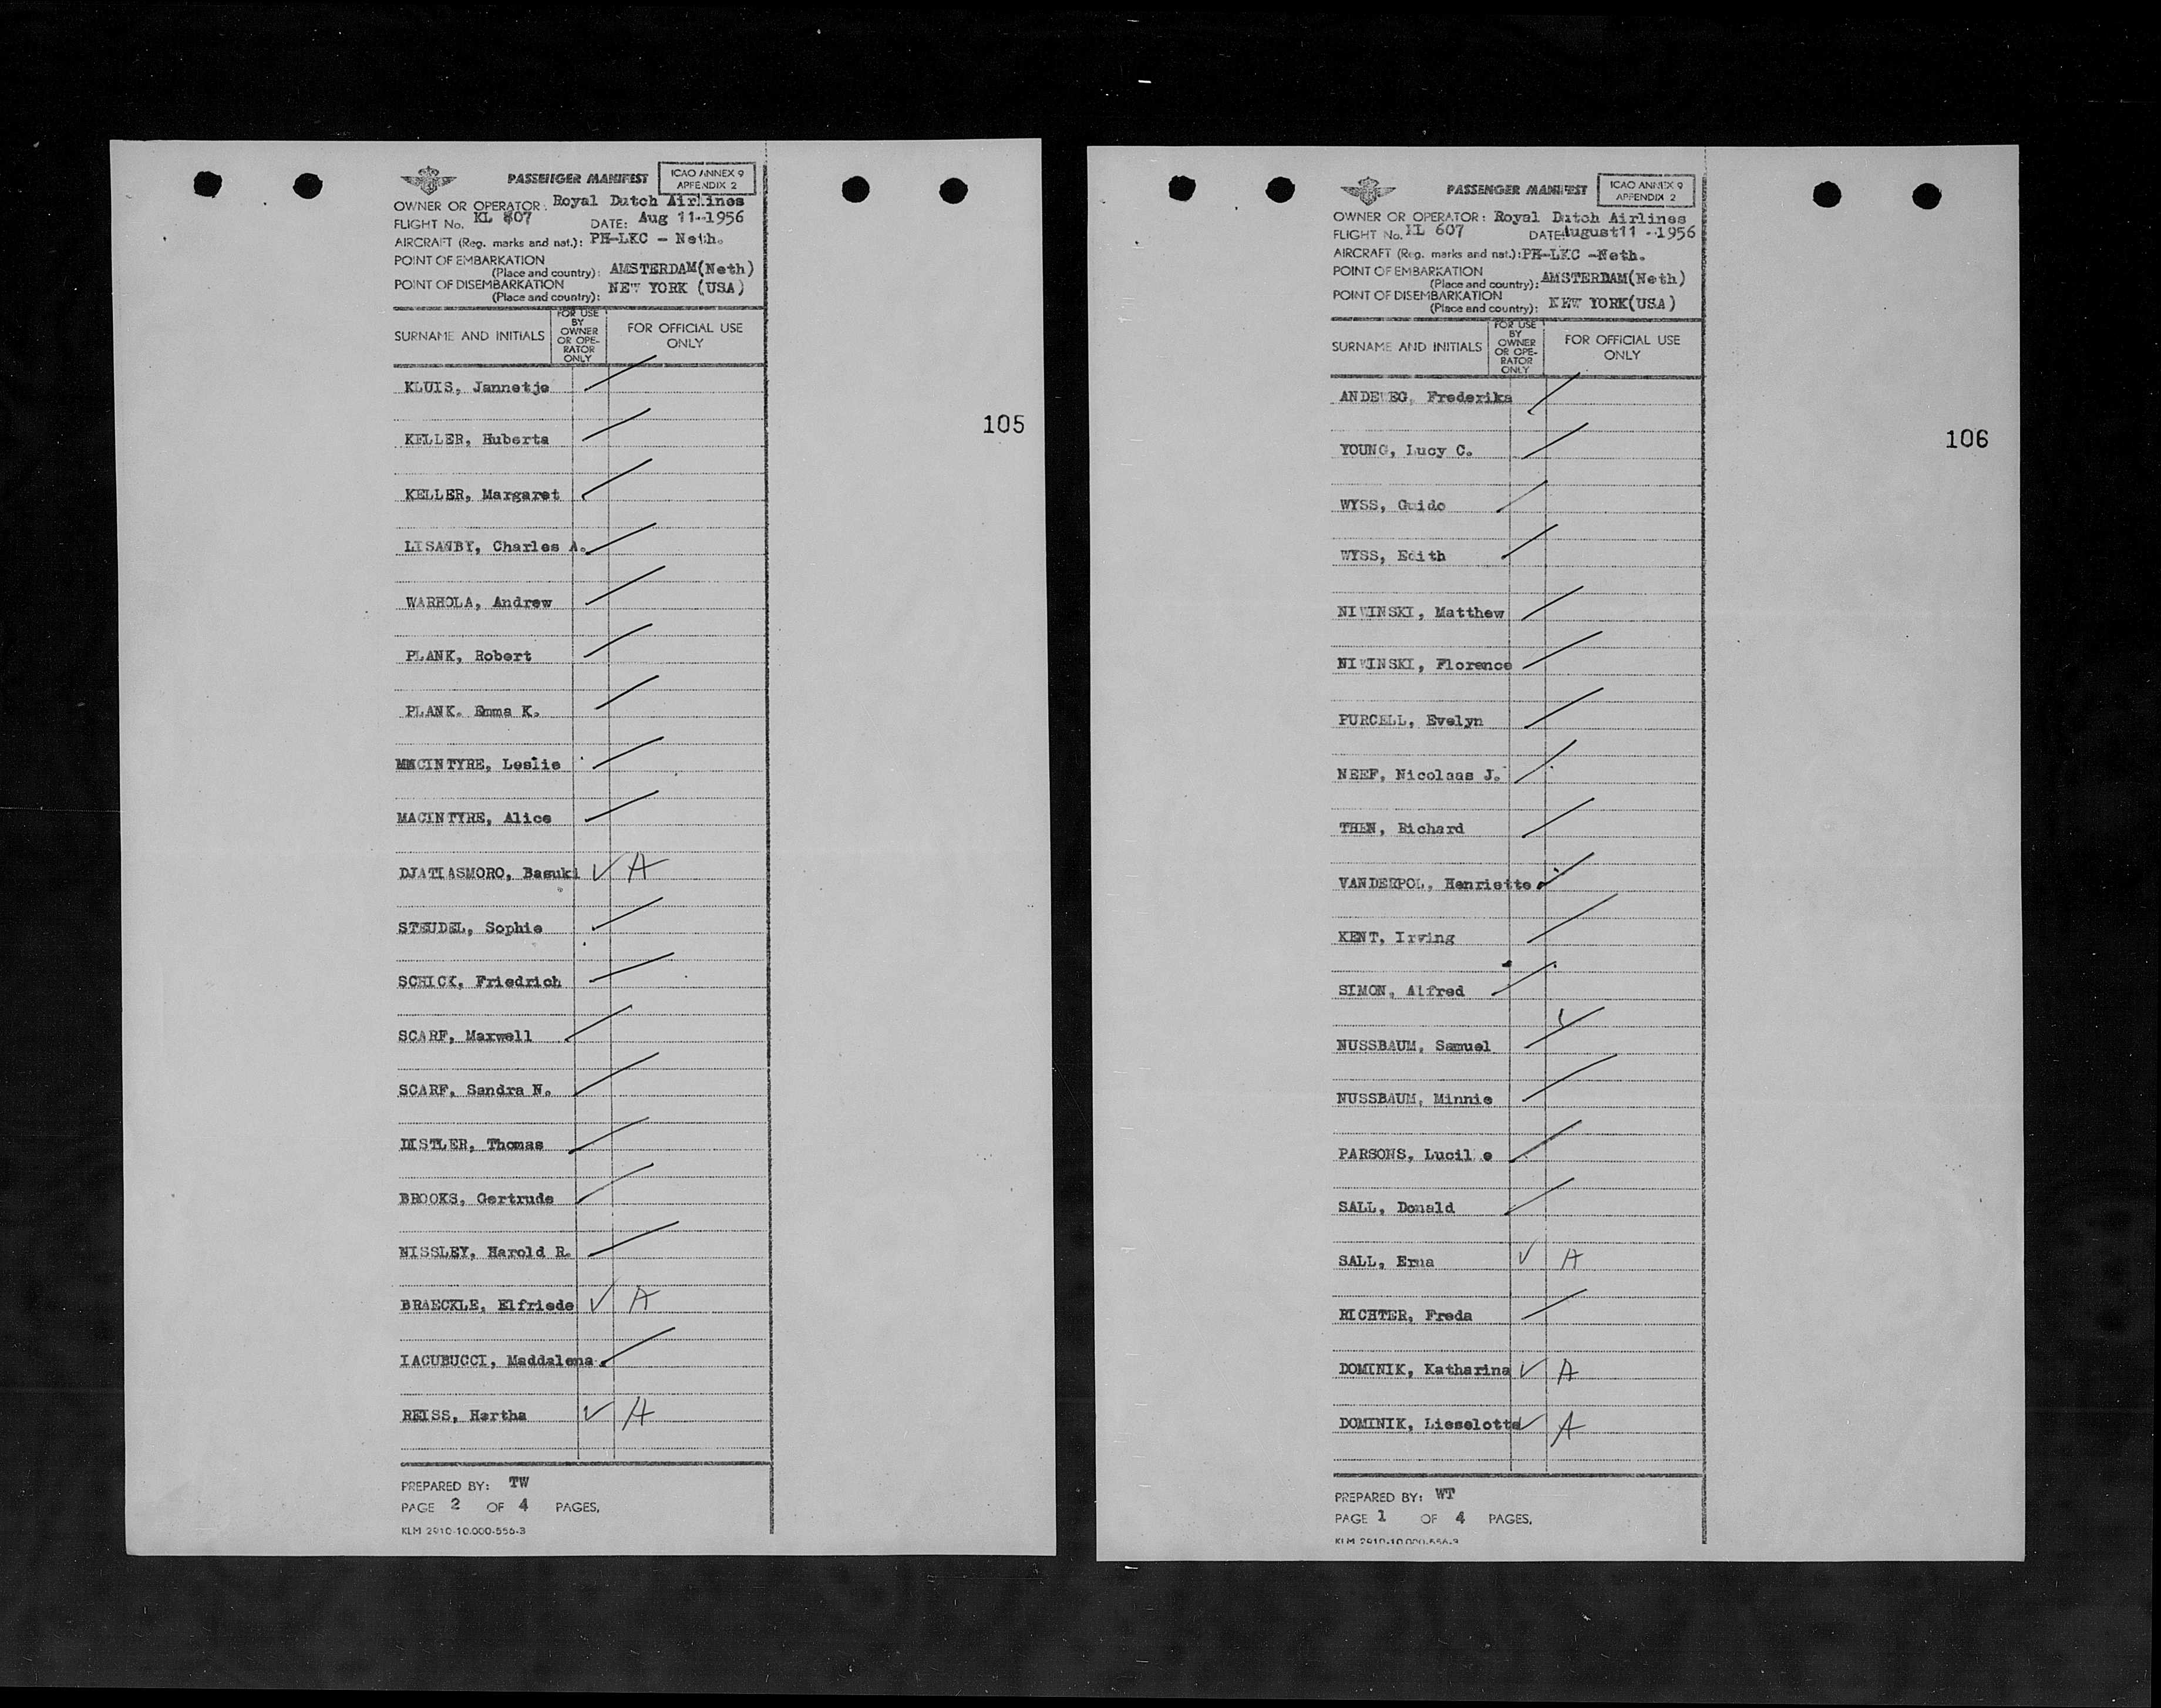 PASSENGER MANIFEST
ICAO ANNEX 9
APPENDIX 2
OWNER OR OPERATOR: Royal Dutch Airlines
FLIGHT No. KL 607 DATE: Aug 11-1956
AIRCRAFT (Reg. marks and nat.): PH-LKC - Neth.
POINT OF EMBARKATION
(Place and country): AMSTERDAM(Neth)
POINT OF DISEMBARKATION
(Place and country): NEW YORK (USA)
SURNAME AND INITIALS
FOR USE
BY
OWNER
OR OPE-
RATOR
ONLY
FOR OFFICIAL USE
ONLY
KLUIS, Jannetje
105
KELLER, Huberta
KELLER, Margaret
LISANBY, Charles A.
WARHOLA, Andrew
PLANK, Robert
PLANK. Emma K.
MACINTYRE, Leslie
MACINTYRE, Alice
DJATIASMORO, Basuki ✓ A
STEUDEL, Sophie
SCHICK, Friedrich
SCARF, Maxwell
SCARF, Sandra N.
DISTLER, Thomas
BROOKS, Gertrude
NISSLEY, Harold R.
BRAECKLE, Elfriede ✓ A
IACUBUCCI, Maddalena
REISS, Hertha ✓ A
PREPARED BY: TW
PAGE 2 OF 4 PAGES,
KLM 2910-10.000-556-3
PASSENGER MANIFEST
ICAO ANNEX 9
APPENDIX 2
OWNER OR OPERATOR: Royal Dutch Airlines
FLIGHT No. KL 607 DATE: August 11 -1956
AIRCRAFT (Reg. marks and nat.): PH-LKC -Neth.
POINT OF EMBARKATION
(Place and country): AMSTERDAM(Neth)
POINT OF DISEMBARKATION
(Place and country): NEW YORK(USA)
SURNAME AND INITIALS
FOR USE
BY
OWNER
OR OPE-
RATOR
ONLY
FOR OFFICIAL USE
ONLY
ANDEWEG, Frederika
106
YOUNG, Lucy C.
WYSS, Guido
WYSS, Edith
NIWINSKI, Matthew
NIWINSKI, Florence
PURCELL, Evelyn
NEEF, Nicolaas J.
THEN, Richard
VANDERPOL, Henriette
KENT, Irving
SIMON, Alfred
NUSSBAUM, Samuel
NUSSBAUM, Minnie
PARSONS, Lucille
SALL, Donald
SALL, Erna ✓ A
RICHTER, Freda
DOMINIK, Katharina ✓ A
DOMINIK, Lieselotte ✓ A
PREPARED BY: WT
PAGE 1 OF 4 PAGES,
KLM 2910-10.000-556-3